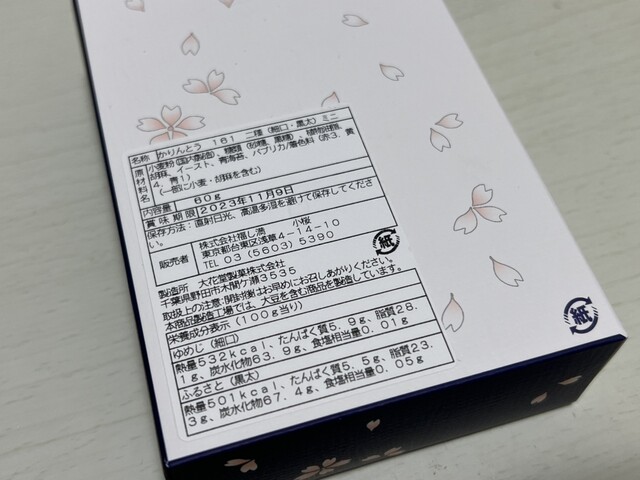 名称 かりんとう 161 二種(細口・黒太)ミニ
原材料名 小麦粉(国内製造)、糖類(砂糖、黒糖)、植物油脂、
胡麻、イースト、青海苔、パプリカ/着色料(赤3、黄
4、青1)
(一部に小麦・胡麻を含む)
内容量 60g
賞味期限 2023年11月9日
保存方法:直射日光、高温多湿を避けて保存してくださ
い。
販売者 株式会社福し満 小桜
東京都台東区浅草4-14-10
TEL 03(5603)5390
紙
製造所 大花堂製菓株式会社
千葉県野田市木間ケ瀬3535
取扱上の注意:開封後はお早めにお召しあがりください。
本商品製造工場では、大豆を含む商品を製造しています。
栄養成分表示(100g当り)
ゆめじ(細口)
熱量532kcal、たんぱく質5.9g、脂質28.
1g、炭水化物63.9g、食塩相当量0.01g
ふるさと(黒太)
熱量501kcal、たんぱく質5.5g、脂質23.
3g、炭水化物67.4g、食塩相当量0.05g
紙